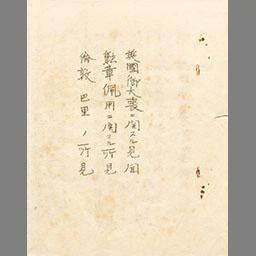 英國御大喪ニ関スル見聞
勲章佩用ニ関スル所見
倫敦巴里ノ所見